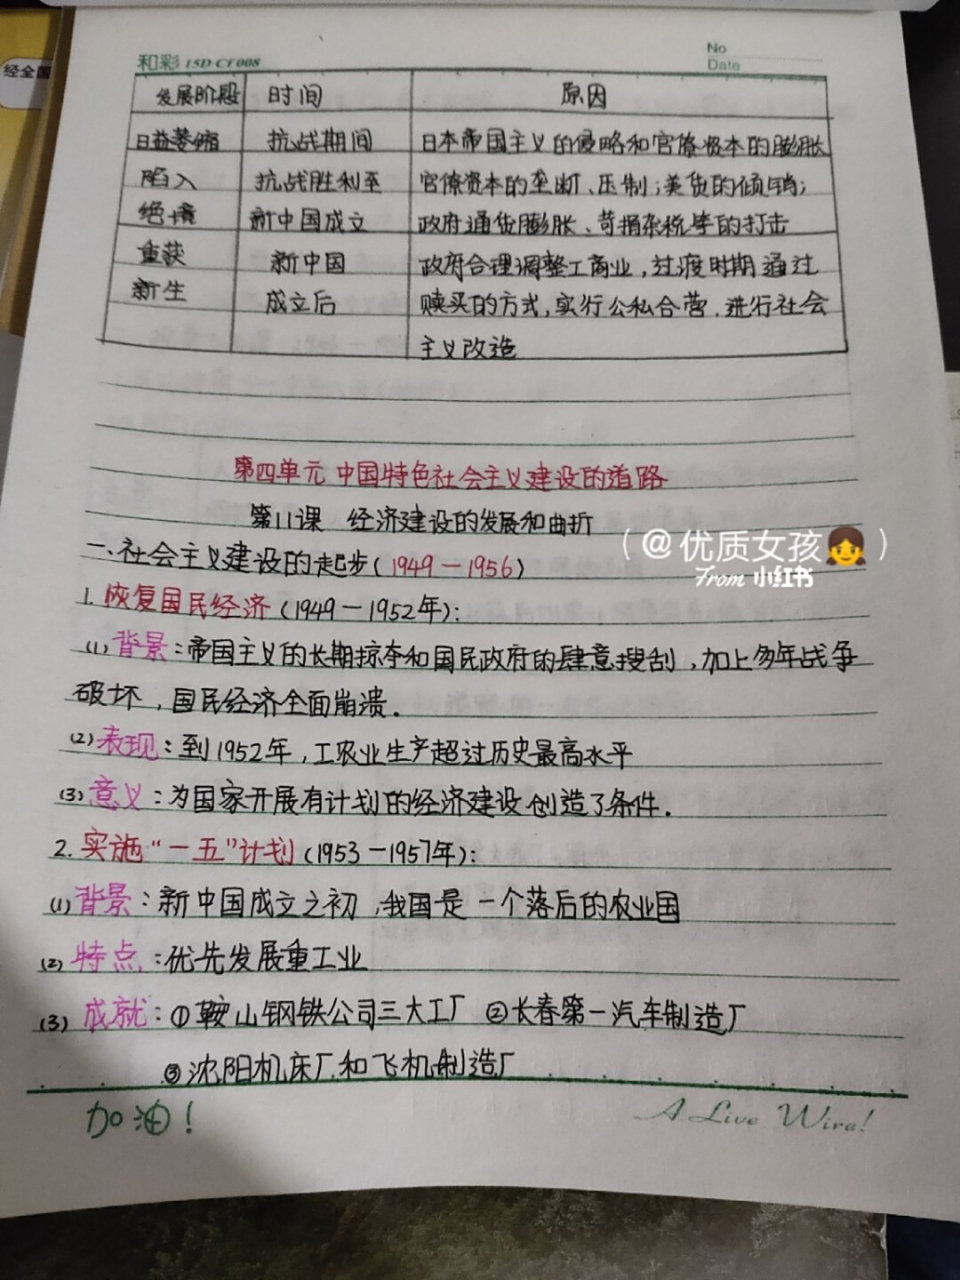 经全国
和彩 15D-CT008
No
Date
发展阶段 时间 原因
日益萎缩 抗战期间 日本帝国主义的侵略和官僚资本的膨胀
陷入 抗战胜利至 官僚资本的垄断、压制;美货的倾销;
绝境 新中国成立 政府通货膨胀、苛捐杂税等的打击
重获 新中国 政府合理调整工商业,过渡时期通过
新生 成立后 赎买的方式,实行公私合营.进行社会
主义改造
第四单元 中国特色社会主义建设的道路
第11课 经济建设的发展和曲折
(@优质女孩👧)
From 小红书
一、社会主义建设的起步(1949-1956)
1.恢复国民经济(1949-1952年):
(1)背景:帝国主义的长期掠夺和国民政府的肆意搜刮,加上多年战争
破坏,国民经济全面崩溃.
(2)表现:到1952年,工农业生产超过历史最高水平
(3)意义:为国家开展有计划的经济建设创造了条件.
2.实施"一五"计划(1953-1957年):
(1)背景:新中国成立之初,我国是一个落后的农业国
(2)特点:优先发展重工业
(3)成就:①鞍山钢铁公司三大工厂 ②长春第一汽车制造厂
③沈阳机床厂和飞机制造厂
加油!
A Live Wire!